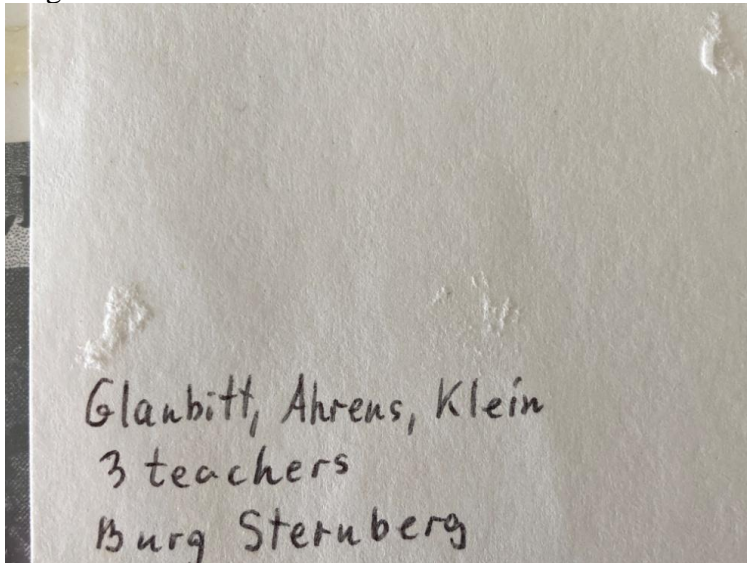 Glaubitt, Ahrens, Klein
3 teachers
Burg Sternberg